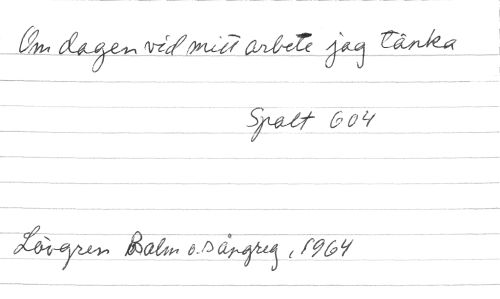 Om dagen vid mitt arbete jag tänka
Spalt 604
Lövgren Psalm o. sångreg, 1964